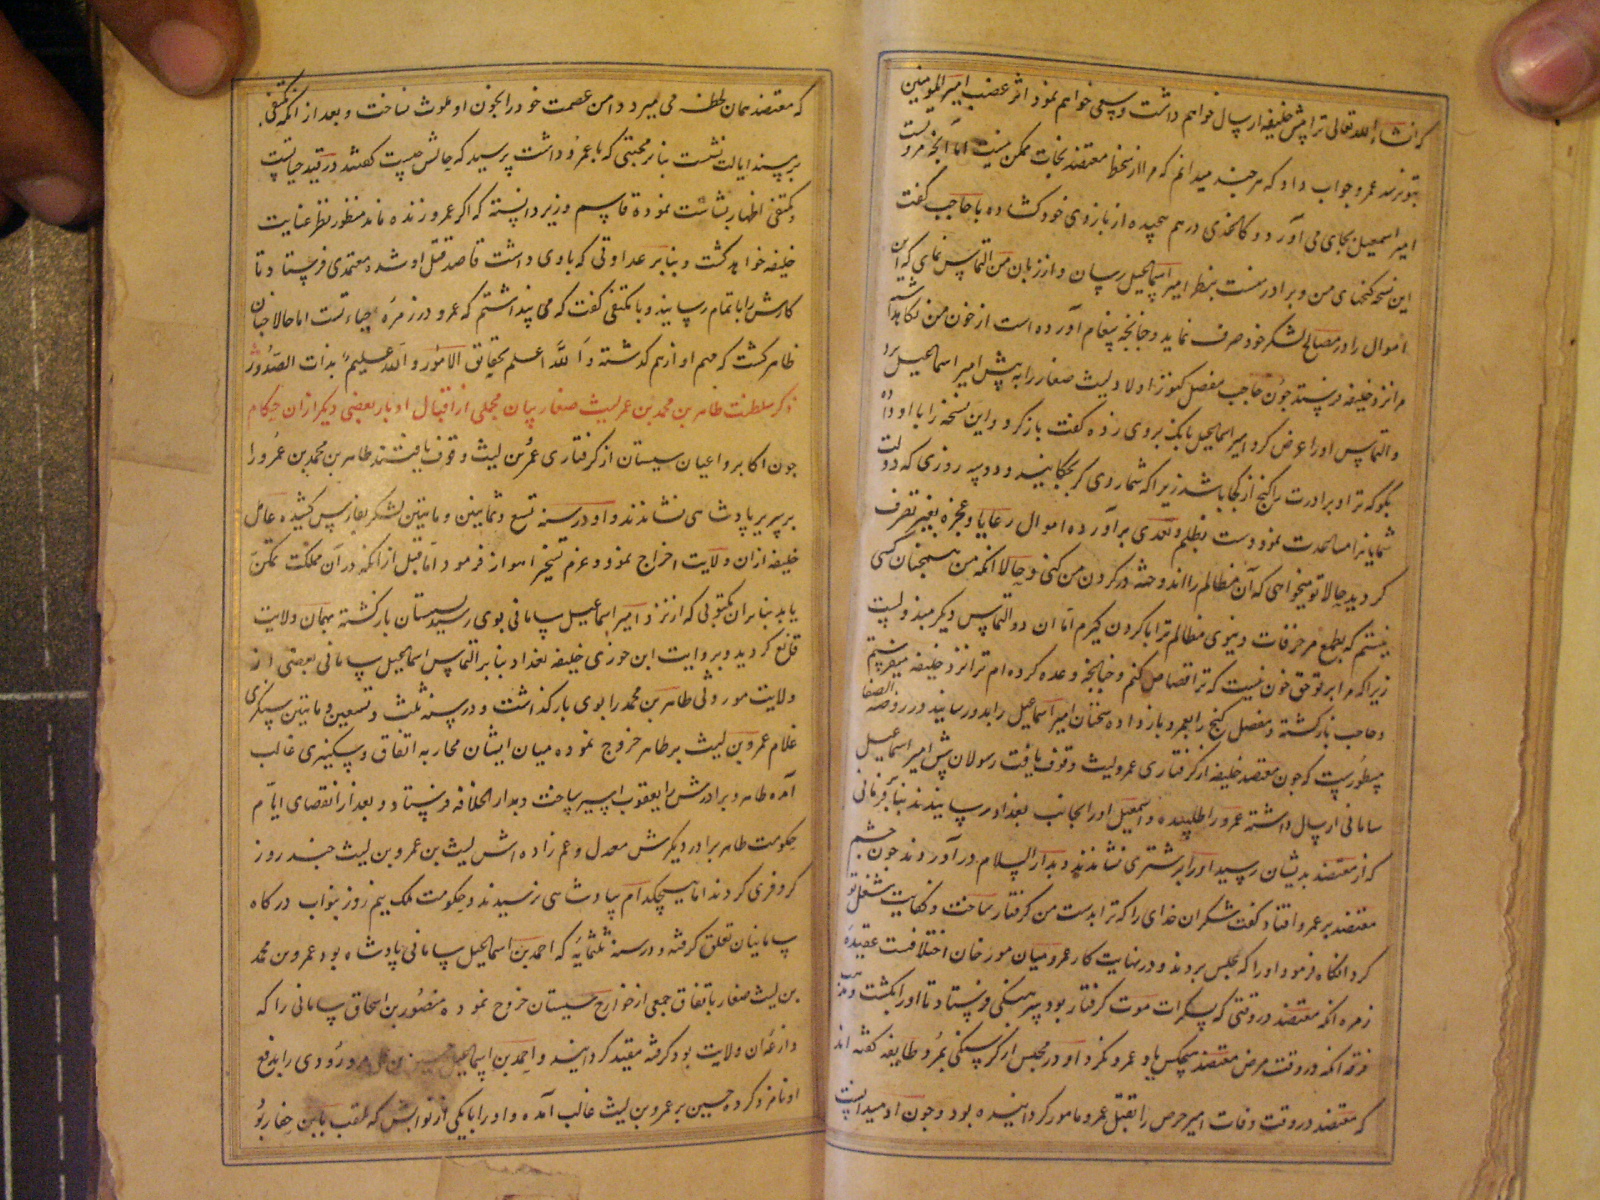 که انشاء الله تعالی ترا پیش خلیفه ارسال خواهم داشت و سعی خواهم نمود اثر غضب امیر المومنین
بتو نرسد عمرو جواب داد که هر چند میدانم که مرا از سخط معتضد نجات ممکن نیست اما آنچه مروت
امیر اسمعیل بجای می آورد و کاغذی در هم پیچیده از بازوی خود کشاده با حاجب گفت
این نسخه گنجهای من و برادر منست بنظر امیر اسمعیل رسان و از زبان من التماس نمای که این
اموال را در مصالح لشکر خود صرف نماید و چنانچه پیغام آورده است از خون من نگاهداشته
مرا نزد خلیفه فرستد چون حاجب مفصل کنوز اولاد لیث صفار را به پیش امیر اسماعیل برد
و التماس او را عرض کرد امیر اسمعیل بانک بروی زده گفت باز کرد و این نسخه را با او ده
بگو که ترا و برادرت را گنج از کجا باشد زیرا که شما روی گر بچگانید و دو سه روزی که دولت
شمایانرا مساعدت نمود دست بظلم و تعدی برآورده اموال رعایا و عجزه بغیر تصرف
کردید حالا تو میخواهی که آن مظالم را اندوخته در گردن من کنی و حالا انکه من همچنان کسی
نیستم که بطمع مزخرفات دنیوی مظالم ترا با کردن گیرم اما آن دو التماس دیگر مبذولست
زیرا که مرا بر تو حق خون نیست که ترا قصاص کنم و چنانچه وعده کرده ام ترا نزد خلیفه میفرستم
و حاجب بازگشته و مفصل گنج را بعمرو باز داده سخنان امیر اسماعیل را بدو رسانید و در روضه الصفا
مسطورست که چون معتضد خلیفه از گرفتاری عمرو لیث وقوف یافت رسولان پیش امیر اسماعیل
سامانی ارسال داشته عمرو را طلبیده و اسمعیل او را بجانب بغداد رسانیدند بنا بر فرمانی
که از معتضد بدیشان رسید او را بر شتری نشاندند و بدار السلام در آوردند چون چشم
معتضد بر عمرو افتاد گفت شکر آن خدای را که ترا بدست من گرفتار ساخت و کفایت شغل تو
کرد انگاه فرمود او را که بحبس بردند و در نهایت کار عمرو میان مورخان اختلافست عقیده
زمره آنکه معتضد در وقتی که بسکرات موت گرفتار بود سرهنگی فرستاد تا او را بکشت و مذهب
فرقه آنکه در وقت مرض معتضد هیچکس یاد عمرو نکرد او در محبس از گرسنگی بمرد و طایفه گفته اند
که معتضد در وقت وفات امیر حرس را بقتل عمرو مامور گردانیده بود و چون او میدانست
که معتضد همان لحظه می میرد دامن عصمت خود را بخون او ملوث نساخت و بعد از آنکه مکتفی
بر مسند ایالت نشست بنابر محبتی که با عمرو داشت پرسید که حالش چیست گفتند در قید حیاتست
و مکتفی اظهار بشاشت نموده قاسم وزیر دانسته که اگر عمرو زنده ماند منظور نظر عنایت
خلیفه خواهد گشت و بنا بر عداوتی که با وی داشت قاصد قتل او شد و معتمدی فرستاد تا
کارش را باتمام رسانید و با مکتفی گفت که می پنداشتم که عمرو در زمره احیاء است اما حالا چنان
ظاهر گشت که مهم او از هم گذشته و الله اعلم بحقایق الامور و الله علیم بذات الصدور
ذکر سلطنت طاهر بن محمد بن عمر لیث صفار بیان مجملی از اقبال و ادبار بعضی دیگر از ان حکام
چون اکابر و اعیان سیستان از گرفتاری عمر بن لیث وقوف یافتند طاهر بن محمد بن عمرو را
بر سریر پادشاهی نشاندند و او در سنه تسع و ثمانین و مایتین لشکر بفارس کشیده عامل
خلیفه از ان ولایت اخراج نمود و عزم تسخیر اهواز فرمود اما قبل از انکه در آن مملکت تمکن
یابد بنا بر ان مکتوبی که از نزد امیر اسماعیل سامانی بوی رسید بسیستان بازگشته بهمان ولایت
قانع گردید و بروایت ابن جوزی خلیفه بغداد بنا بر التماس اسمعیل سامانی بعضی از
ولایت موروثی طاهر بن محمد را بوی باز گذاشت و در سنه ثلث و تسعین و مایتین سبکری
غلام عمرو بن لیث بر طاهر خروج نموده میان ایشان محاربه اتفاق و سبکری غالب
آمده طاهر و برادرش را یعقوب اسیر ساخت و بدار الخلافه فرستاد و بعد از انقضای ایام
حکومت طاهر برادر دیگرش معدل و عم زاده اش لیث بن عمرو بن لیث چند روز
کر و فری کردند اما هیچکدام بپادشاهی نرسیدند و حکومت ملک نیم روز بنواب درگاه
سامانیان تعلق گرفته و در سنه ثلثمائه که احمد بن اسمعیل سامانی پادشاه بود عمرو بن محمد
بن لیث صفار باتفاق جمعی از خوارج سیستان خروج نموده منصور بن اسحاق سامانی را که
داروغه آن ولایت بود گرفته مقید گردانید و احمد بن اسماعیل حسین بن علی مرورودی را بدفع
او نامزد کرده حسین بر عمرو بن لیث غالب آمده و او را با یکی از نوابش که ملقب بابن حفار بود